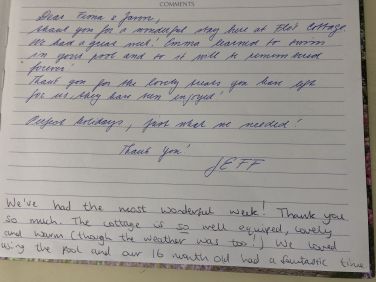 COMMENTS
Dear Fiona & John,
Thank you for a wonderful stay here at Flo's Cottage.
We had a great week! Emma learned to swim
in your pool and so it will be remembered
forever!
Thank you for the lovely treats you have left
for us, they have been enjoyed!
Perfect holidays, just what we needed!
Thank you!
JEFF
We've had the most wonderful week! Thank you
so much. The cottage is so well equiped, lovely
and warm (though the weather was too!) We loved
using the pool and our 16 month old had a fantastic time